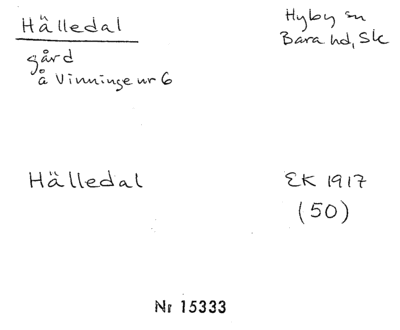 Hälledal
Hyby sn
Bara hd, Sk
gård
å Vinninge nr 6
Hälledal
EK 1917
(50)
Nr 15333